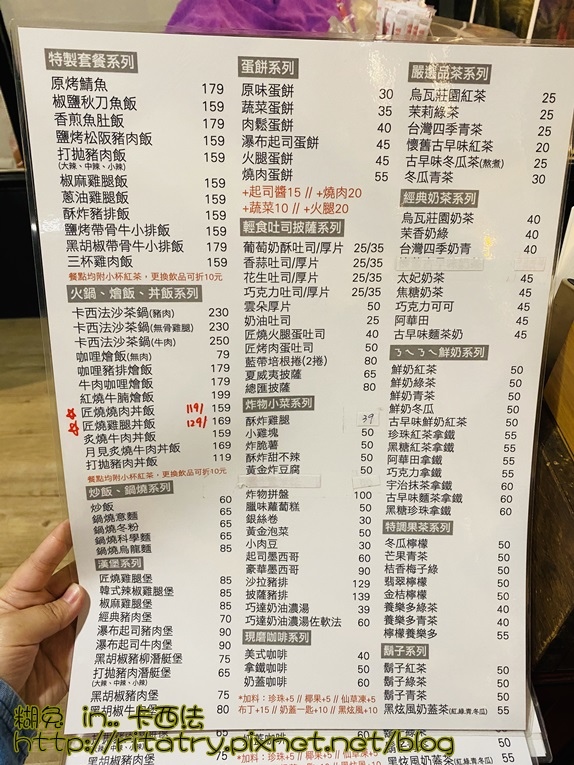 特製套餐系列
原烤鯖魚 179
椒鹽秋刀魚飯 179
香煎魚肚飯 179
鹽烤松阪豬肉飯 159
打拋豬肉飯 159
(大辣、中辣、小辣)
椒麻雞腿飯 159
蔥油雞腿飯 159
酥炸豬排飯 159
鹽烤帶骨牛小排飯 179
黑胡椒帶骨牛小排飯 179
三杯雞肉飯 159
餐點均附小杯紅茶，更換飲品可折10元
火鍋、燴飯、丼飯系列
卡西法沙茶鍋(豬肉) 230
卡西法沙茶鍋(無骨雞腿) 230
卡西法沙茶鍋(牛肉) 250
咖哩燴飯(無肉) 79
咖哩豬排燴飯 179
牛肉咖哩燴飯 179
紅燒牛腩燴飯 199
匠燒燒肉丼飯 119/ 159
匠燒雞腿丼飯 129/ 169
炙燒牛肉丼飯 159
月見炙燒牛肉丼飯 169
打拋豬肉丼飯 119
餐點均附小杯紅茶，更換飲品可折10元
炒飯、鍋燒系列
炒飯 60
鍋燒意麵 65
鍋燒冬粉 65
鍋燒科學麵 65
鍋燒烏龍麵 85
漢堡系列
匠燒雞腿堡 85
韓式辣椒雞腿堡 85
椒麻雞腿堡 85
經典豬肉堡 70
瀑布起司豬肉堡 90
瀑布起司牛肉堡 90
黑胡椒豬柳潛艇堡 75
打拋豬肉潛艇堡 65
(大辣、中辣、小辣)
黑胡椒豬肉堡 75
黑胡椒牛肉堡 80
蛋餅系列
原味蛋餅 30
蔬菜蛋餅 35
肉鬆蛋餅 40
瀑布起司蛋餅 45
火腿蛋餅 45
燒肉蛋餅 55
+起司醬15 // +燒肉20
+蔬菜10 // +火腿20
輕食吐司披薩系列
葡萄奶酥吐司/厚片 25/35
香蒜吐司/厚片 25/35
花生吐司/厚片 25/35
巧克力吐司/厚片 25/35
雲朵厚片 50
奶油吐司 25
匠燒火腿蛋吐司 40
匠烤肉蛋吐司 50
藍帶培根捲(2捲) 80
夏威夷披薩 65
總匯披薩 80
炸物小菜系列
酥炸雞腿 39
小雞塊 50
炸脆薯 50
酥炸甜不辣 50
黃金炸豆腐 50
炸物拼盤 100
臘味蘿蔔糕 50
銀絲卷 30
黃金泡菜 50
小肉豆 30
起司墨西哥 60
豪華墨西哥 90
沙拉豬排 129
披薩豬排 139
巧達奶油濃湯 39
巧達奶油濃湯佐軟法 60
現磨咖啡系列
美式咖啡 40
拿鐵咖啡 50
奶蓋咖啡 60
*加料：珍珠+5 // 椰果+5 // 仙草凍+5
布丁+15 // 奶蓋一匙+10 // 黑炫風+10
嚴選品茶系列
烏瓦莊園紅茶 25
茉莉綠茶 25
台灣四季青茶 25
懷舊古早味紅茶 20
古早味冬瓜茶(熬煮) 25
冬瓜青茶 30
經典奶茶系列
烏瓦莊園奶茶 40
茉香奶綠 40
台灣四季奶青 40
太妃奶茶 45
焦糖奶茶 45
巧克力可可 45
阿華田 45
古早味麵茶奶 45
ㄋ～ㄋ～鮮奶系列
鮮奶紅茶 50
鮮奶綠茶 50
鮮奶青茶 50
鮮奶冬瓜 50
古早味鮮奶紅茶 50
珍珠紅茶拿鐵 55
黑糖紅茶拿鐵 55
阿華田拿鐵 55
巧克力拿鐵 55
宇治抹茶拿鐵 60
古早味麵茶拿鐵 60
黑糖珍珠拿鐵 60
特調果茶系列
冬瓜檸檬 50
芒果青茶 50
桔香梅子綠 50
翡翠檸檬 50
金桔檸檬 50
養樂多綠茶 40
養樂多青茶 40
檸檬養樂多 55
鬍子系列
鬍子紅茶 50
鬍子綠茶 50
鬍子青茶 50
黑炫風奶蓋茶(紅.綠.青.冬瓜) 55
糊兔 in.. 卡西法
http://ritatry.pixnet.net/blog